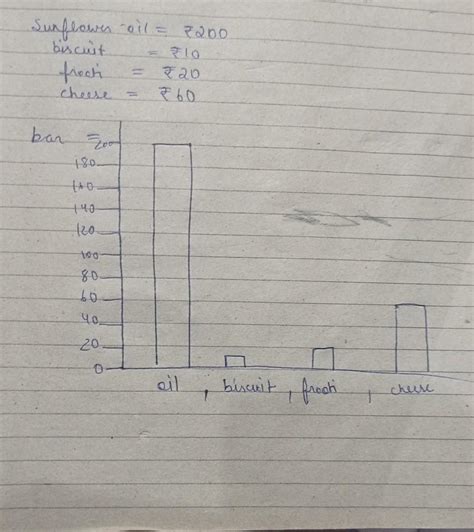 Sunflower oil = ₹200
biscuit = ₹10
frooti = ₹20
cheese = ₹60
bar =
200
180
160
140
120
100
80
60
40
20
0
oil , biscuit , frooti , cheese